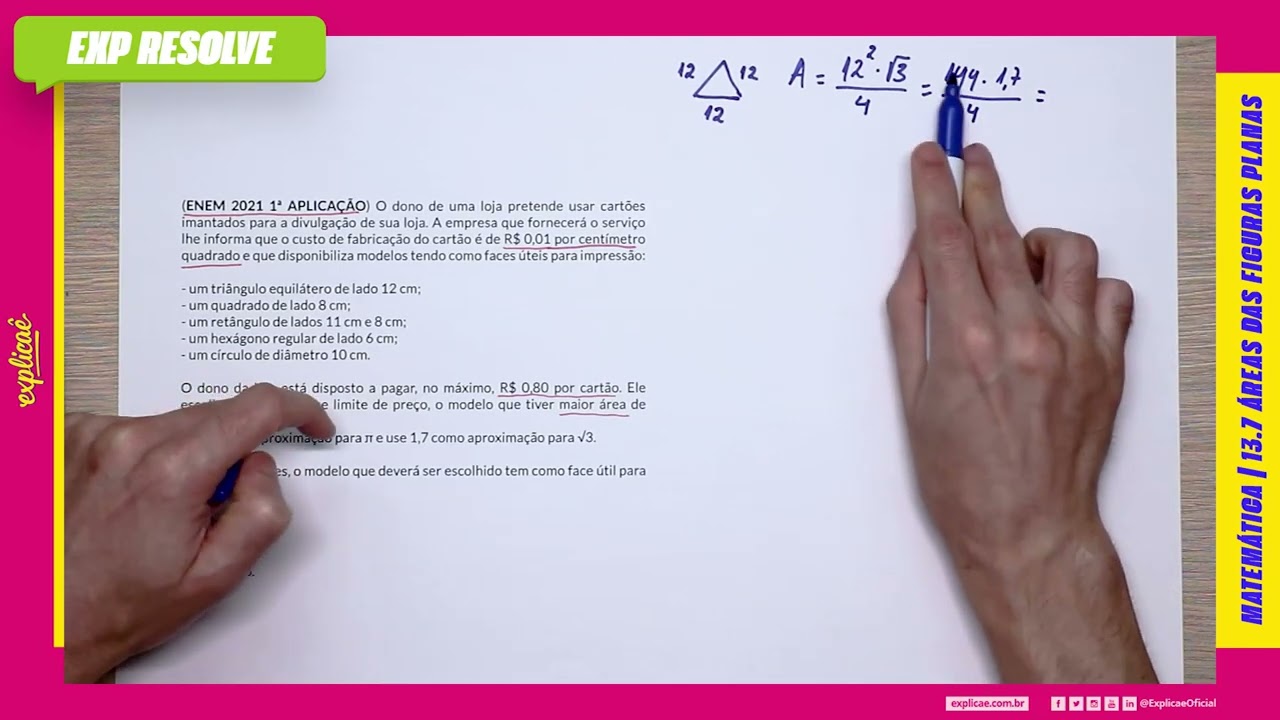 EXP RESOLVE
12 12
12
A = 12² · √3 / 4 = 144 · 1,7 / 4 =
(ENEM 2021 1ª APLICAÇÃO) O dono de uma loja pretende usar cartões
imantados para a divulgação de sua loja. A empresa que fornecerá o serviço
lhe informa que o custo de fabricação do cartão é de R$ 0,01 por centímetro
quadrado e que disponibiliza modelos tendo como faces úteis para impressão:
- um triângulo equilátero de lado 12 cm;
- um quadrado de lado 8 cm;
- um retângulo de lados 11 cm e 8 cm;
- um hexágono regular de lado 6 cm;
- um círculo de diâmetro 10 cm.
O dono está disposto a pagar, no máximo, R$ 0,80 por cartão. Ele
limite de preço, o modelo que tiver maior área de
para π e use 1,7 como aproximação para √3.
o modelo que deverá ser escolhido tem como face útil para
explicaê
MATEMÁTICA | 13.7 ÁREAS DAS FIGURAS PLANAS
explicae.com.br
@ExplicaeOficial